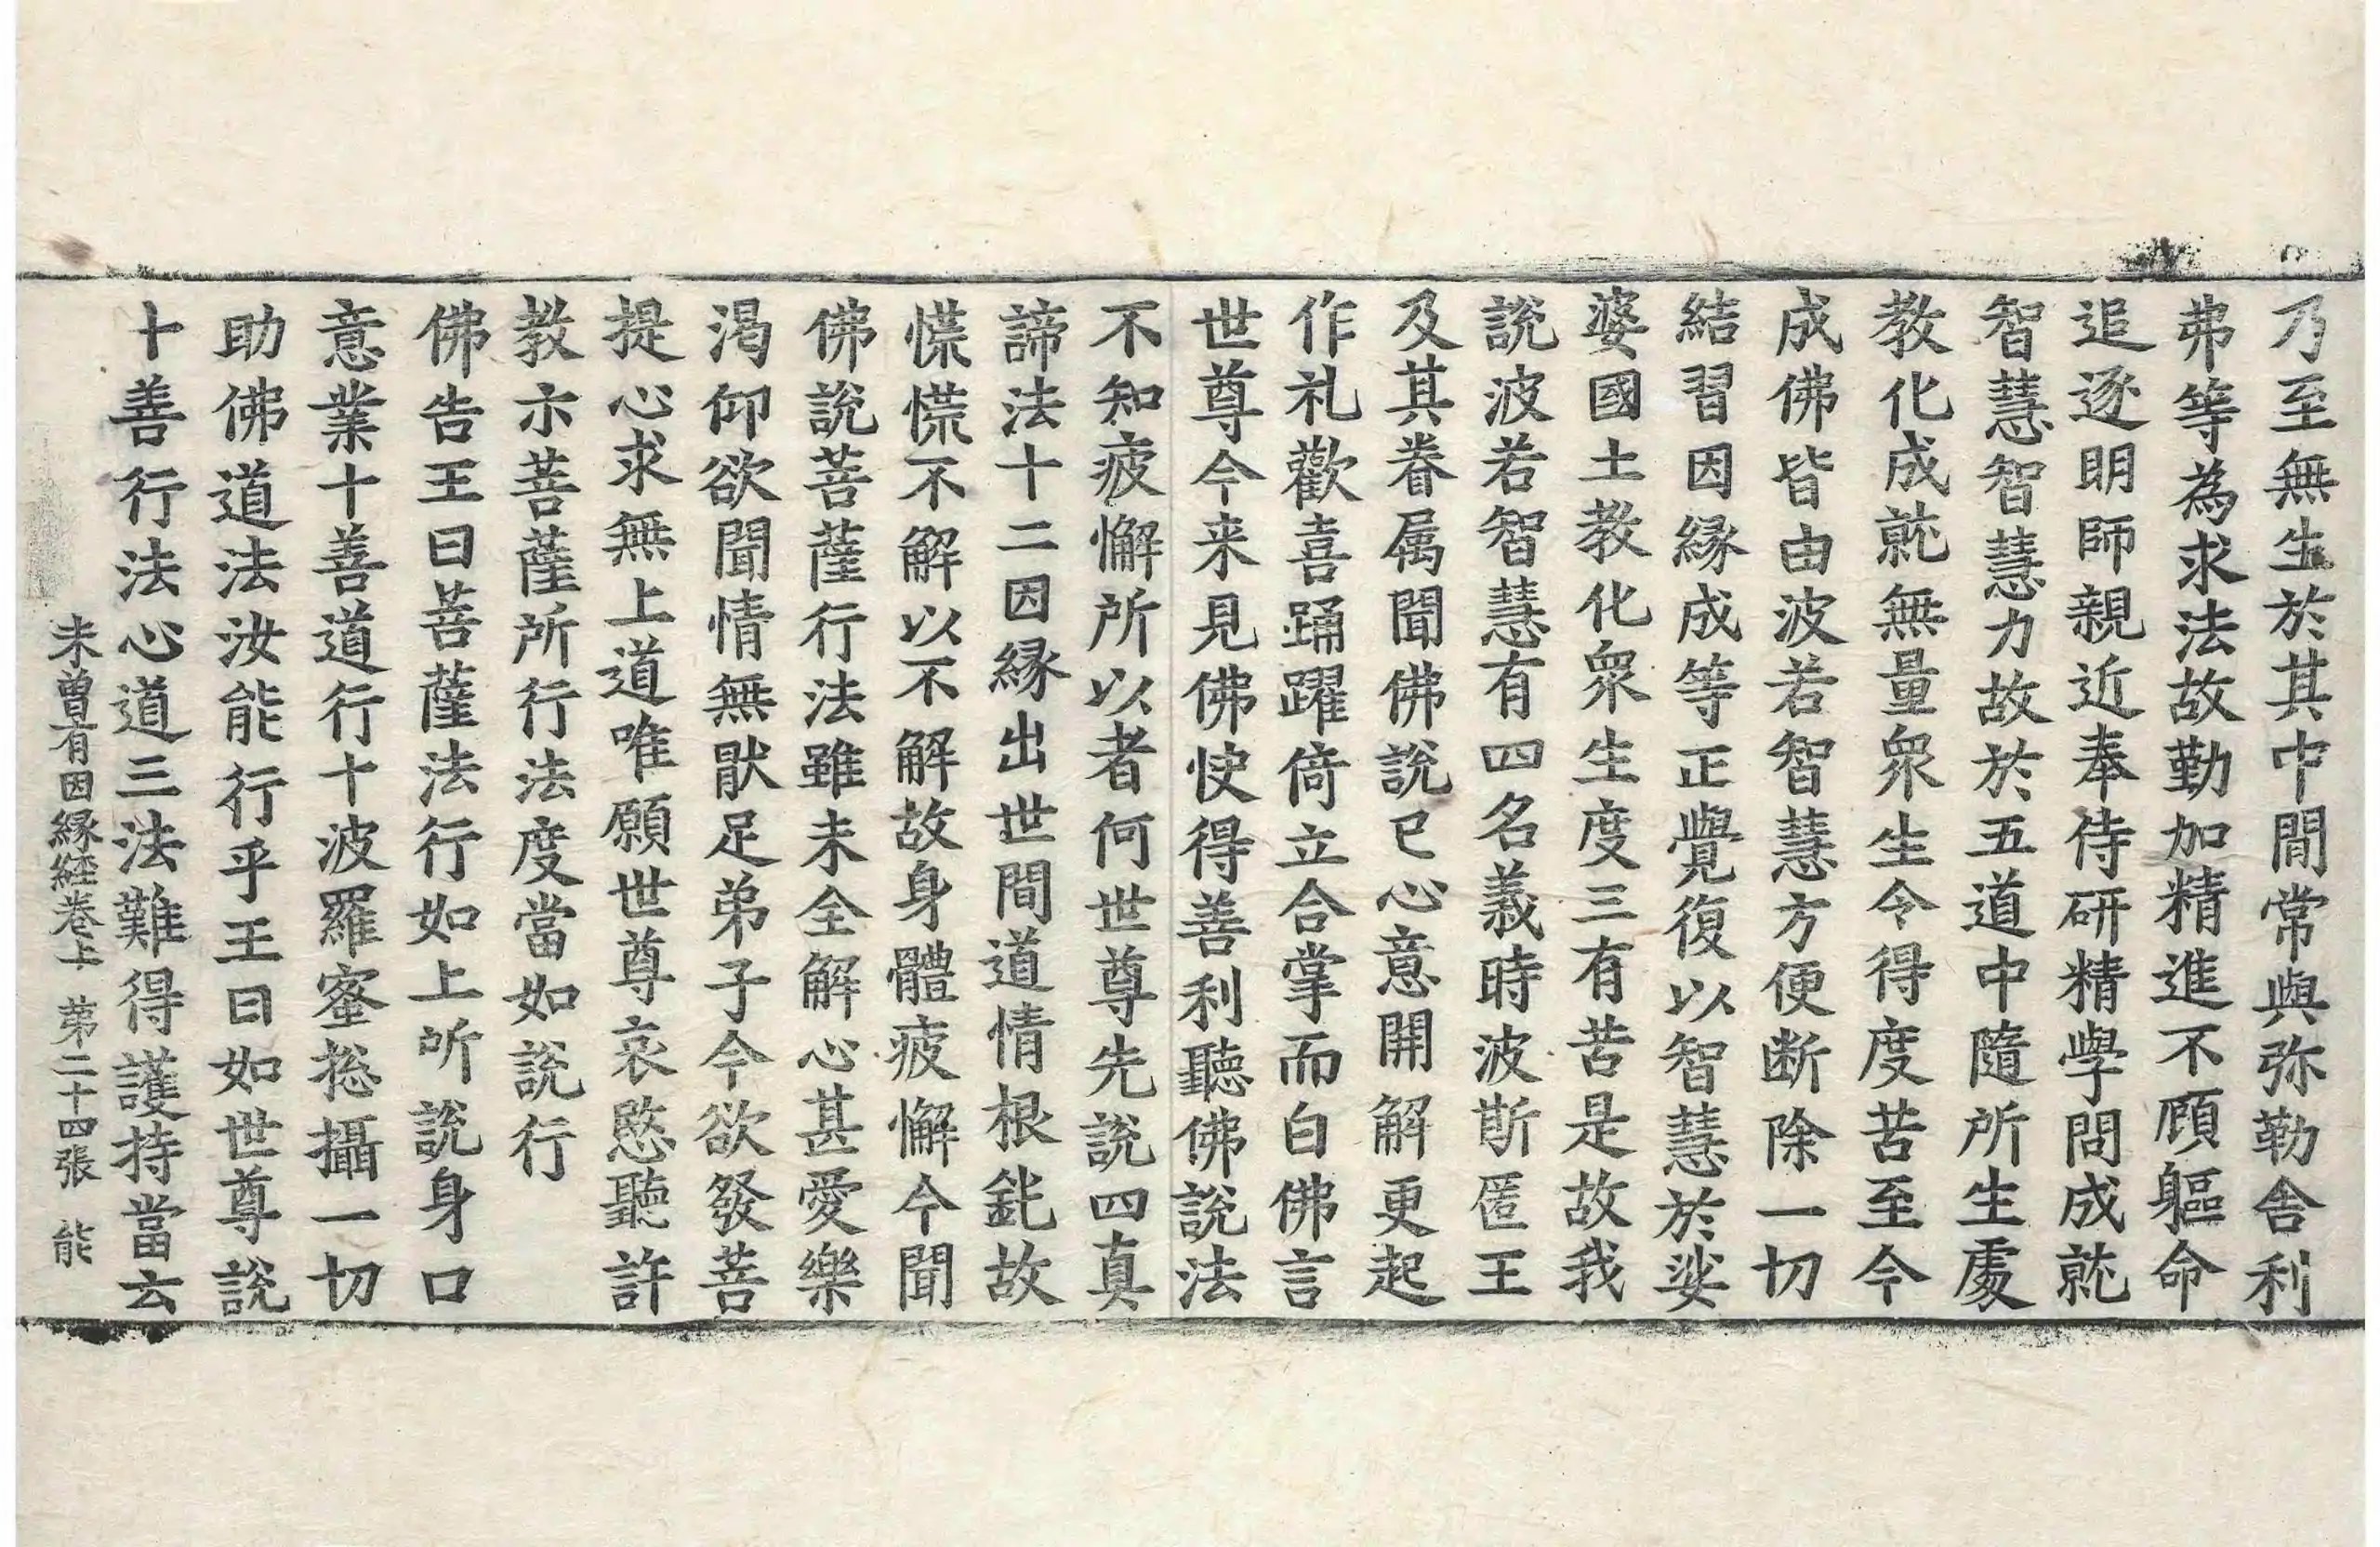 乃至無生於其中間常與弥勒舎利
弗等為求法故勤加精進不顧軀命
追逐明師親近奉侍研精學問成就
智慧智慧力故於五道中隨所生處
教化成就無量衆生令得度苦至今
成佛皆由波若智慧方便断除一切
結習因縁成等正覺復以智慧於娑
婆國土教化衆生度三有苦是故我
說波若智慧有四名義時波斯匿王
及其眷属聞佛說已心意開解更起
作礼歡喜踊躍倚立合掌而白佛言
世尊今来見佛快得善利聽佛說法
不知疲懈所以者何世尊先說四真
諦法十二因縁出世間道情根鈍故
慌慌不解以不解故身體疲懈今聞
佛說菩薩行法雖未全解心甚愛樂
渴仰欲聞情無猒足弟子今欲發菩
提心求無上道唯願世尊哀愍聽許
教示菩薩所行法度當如說行
佛告王曰菩薩法行如上所說身口
意業十善道行十波羅蜜揔攝一切
助佛道法汝能行乎王曰如世尊說
十善行法心道三法難得護持當云
未曽有因縁経巻上　苐二十四張　能